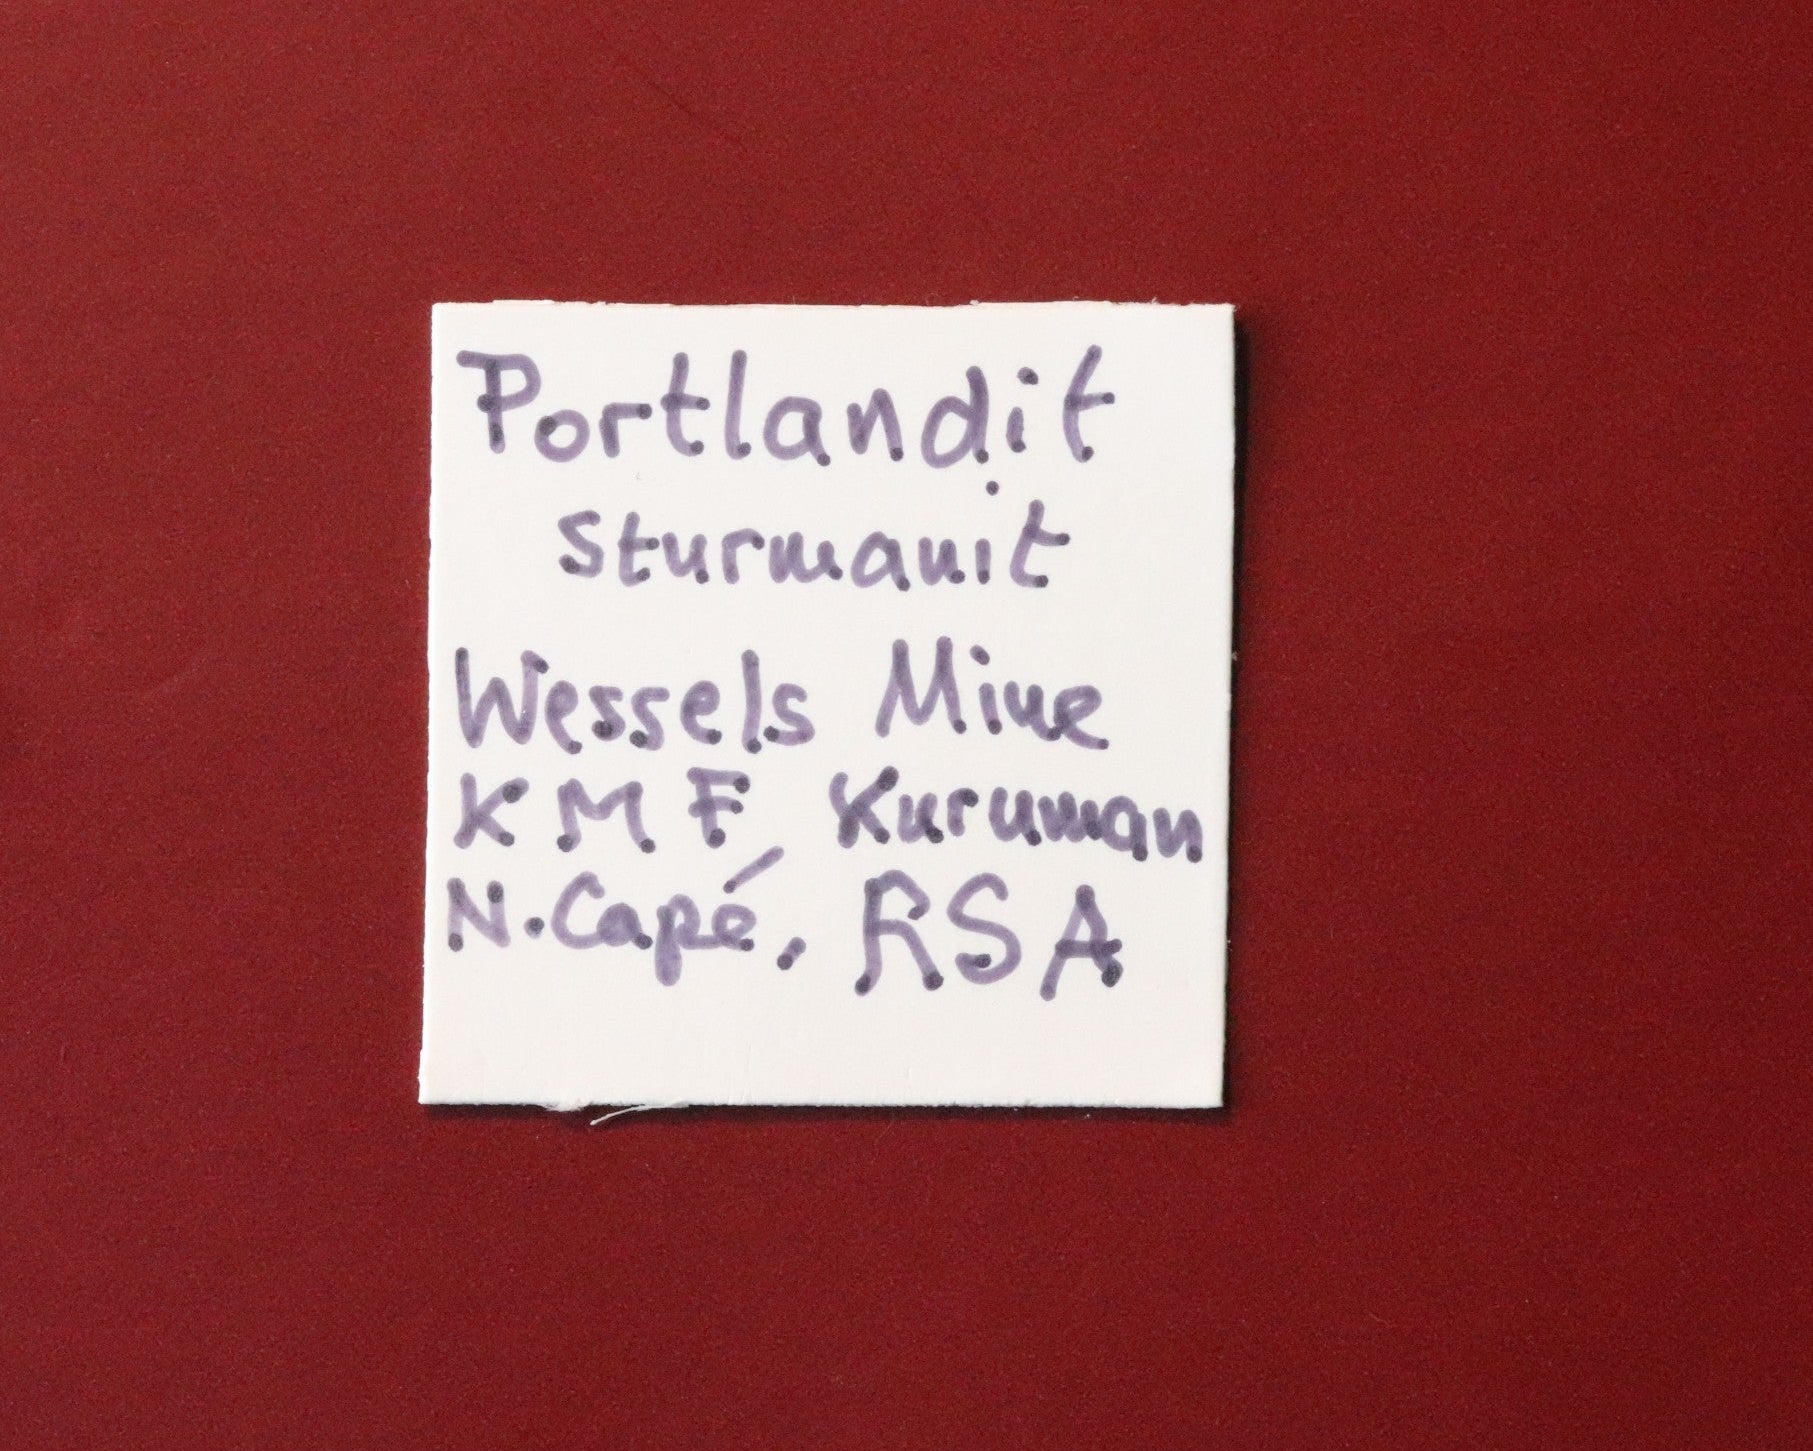 Portlandit
Sturmanit
Wessels Mine
K M F Kuruman
N. Capé, RSA